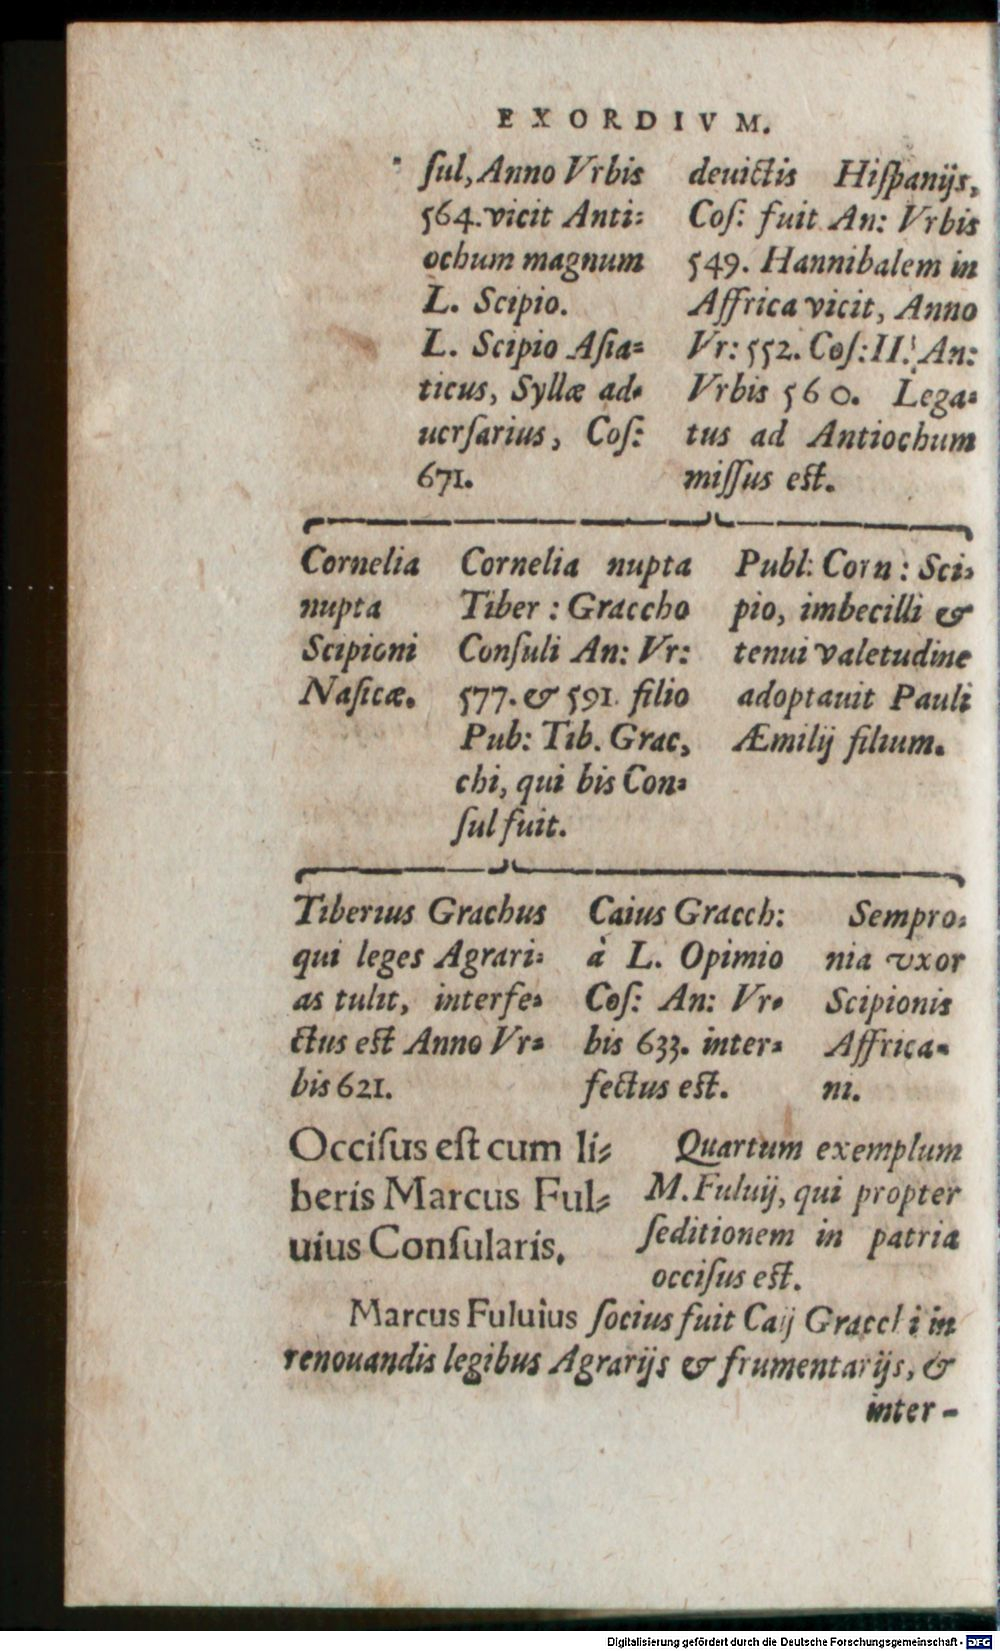 EXORDIVM.
ſul, Anno Vrbis
564. vicit Anti⸗
ochum magnum
L. Scipio.
L. Scipio Aſia⸗
ticus, Syllæ ad⸗
uerſarius, Coſ:
671.
deuictis Hiſpanijs,
Coſ: fuit An: Vrbis
549. Hannibalem in
Affrica vicit, Anno
Vr: 552. Coſ: II. An:
Vrbis 560. Lega⸗
tus ad Antiochum
miſſus eſt.
Cornelia
nupta
Scipioni
Naſicæ.
Cornelia nupta
Tiber: Graccho
Conſuli An: Vr:
577. & 591. filio
Pub: Tib. Grac,
chi, qui bis Con⸗
ſul fuit.
Publ: Corn: Sci⸗
pio, imbecilli &
tenui valetudine
adoptauit Pauli
Æmilij filium.
Tiberius Grachus
qui leges Agrari⸗
as tulit, interfe⸗
ctus eſt Anno Vr⸗
bis 621.
Caius Gracch:
à L. Opimio
Coſ: An: Vr⸗
bis 633. inter⸗
fectus eſt.
Sempro⸗
nia vxor
Scipionis
Affrica⸗
ni.
Occiſus eſt cum li⸗
beris Marcus Ful⸗
uius Conſularis.
Quartum exemplum
M. Fuluij, qui propter
ſeditionem in patria
occiſus eſt.
Marcus Fuluius ſocius fuit Caij Gracchi in
renouandis legibus Agrarijs & frumentarijs, &
inter-
Digitalisierung gefördert durch die Deutsche Forschungsgemeinschaft - DFG